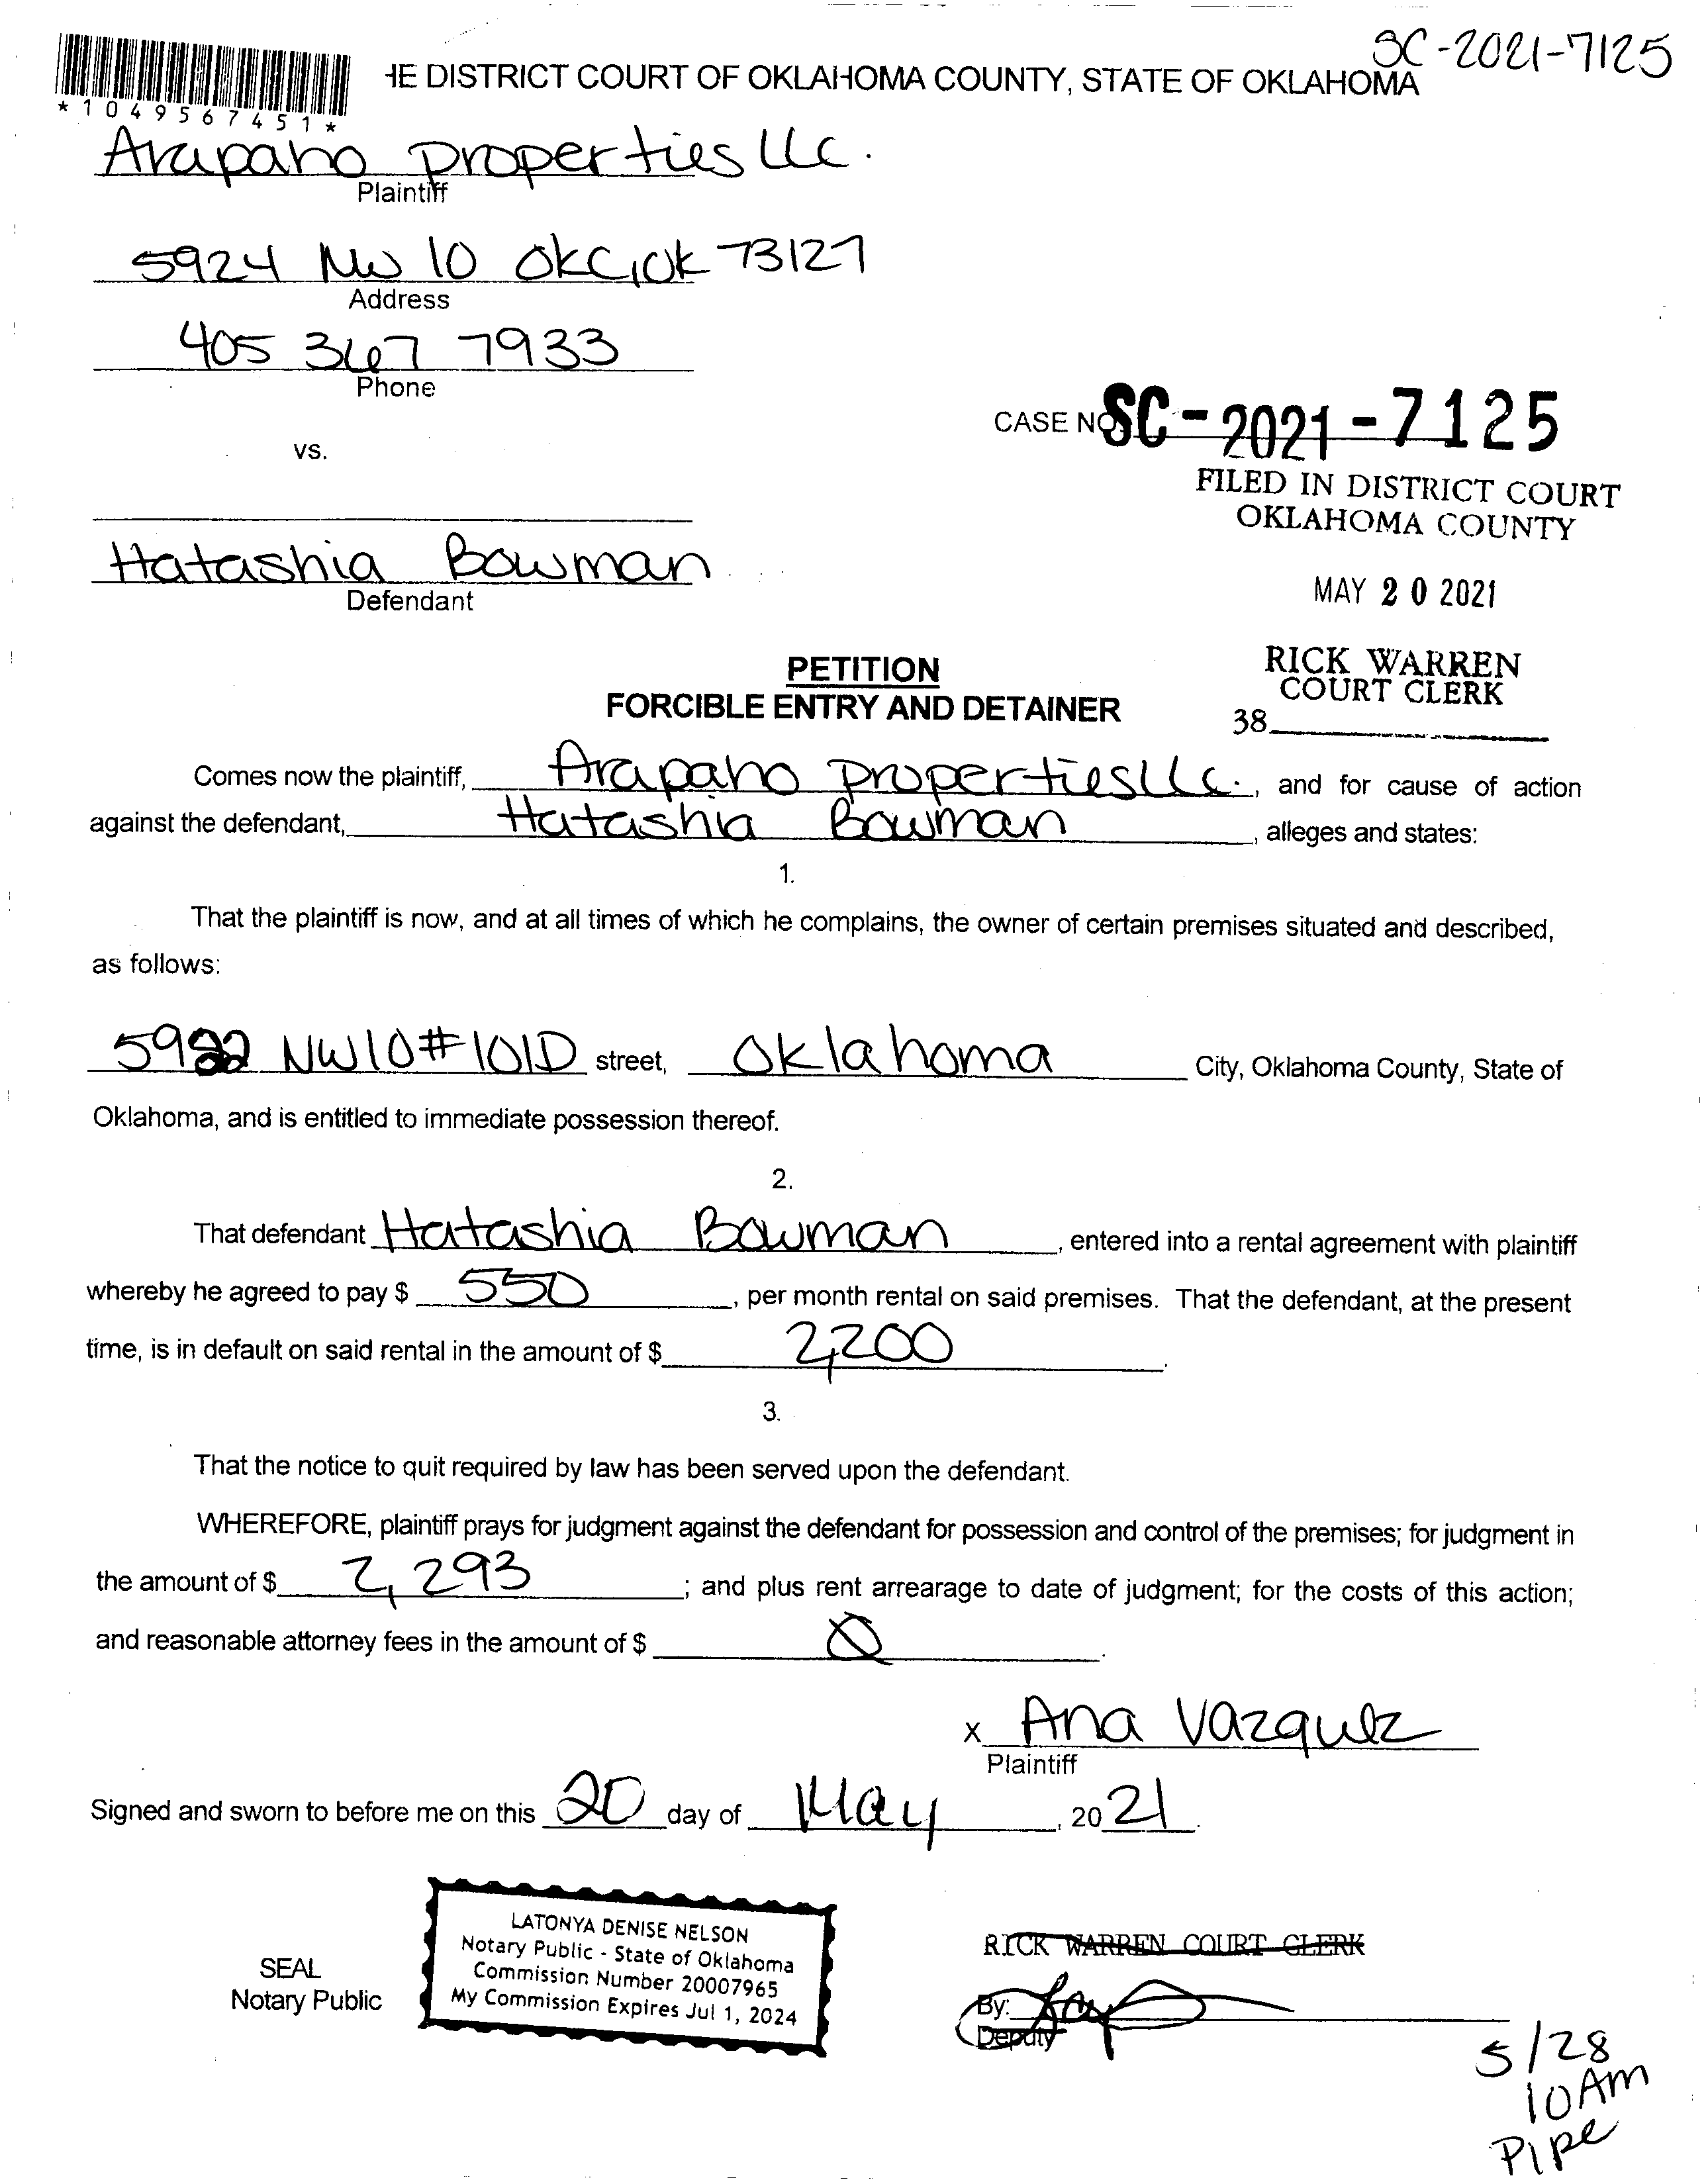 SC-2021-7125
HE DISTRICT COURT OF OKLAHOMA COUNTY, STATE OF OKLAHOMA
*1049567451*
Arapaho properties LLC.
Plaintiff
5924 NW 10 OKC, OK 73127
Address
405 367 7933
Phone
CASE NO. SC-2021-7125
vs.
FILED IN DISTRICT COURT
OKLAHOMA COUNTY
Hatashia Bowman
Defendant
MAY 20 2021
RICK WARREN
COURT CLERK
38
PETITION
FORCIBLE ENTRY AND DETAINER
Comes now the plaintiff, Arapaho properties LLC., and for cause of action
against the defendant, Hatashia Bowman, alleges and states:
1.
That the plaintiff is now, and at all times of which he complains, the owner of certain premises situated and described,
as follows:
5922 NW10#101D street, Oklahoma City, Oklahoma County, State of
Oklahoma, and is entitled to immediate possession thereof.
2.
That defendant Hatashia Bowman, entered into a rental agreement with plaintiff
whereby he agreed to pay $ 550, per month rental on said premises. That the defendant, at the present
time, is in default on said rental in the amount of $ 2,200.
3.
That the notice to quit required by law has been served upon the defendant.
WHEREFORE, plaintiff prays for judgment against the defendant for possession and control of the premises; for judgment in
the amount of $ 2,293; and plus rent arrearage to date of judgment; for the costs of this action;
and reasonable attorney fees in the amount of $ 0.
x Ana Vazquez
Plaintiff
Signed and sworn to before me on this 20 day of May, 2021.
LATONYA DENISE NELSON
Notary Public - State of Oklahoma
Commission Number 20007965
My Commission Expires Jul 1, 2024
SEAL
Notary Public
RICK WARREN COURT CLERK
By:
Deputy
5/28
10 Am
Pipe